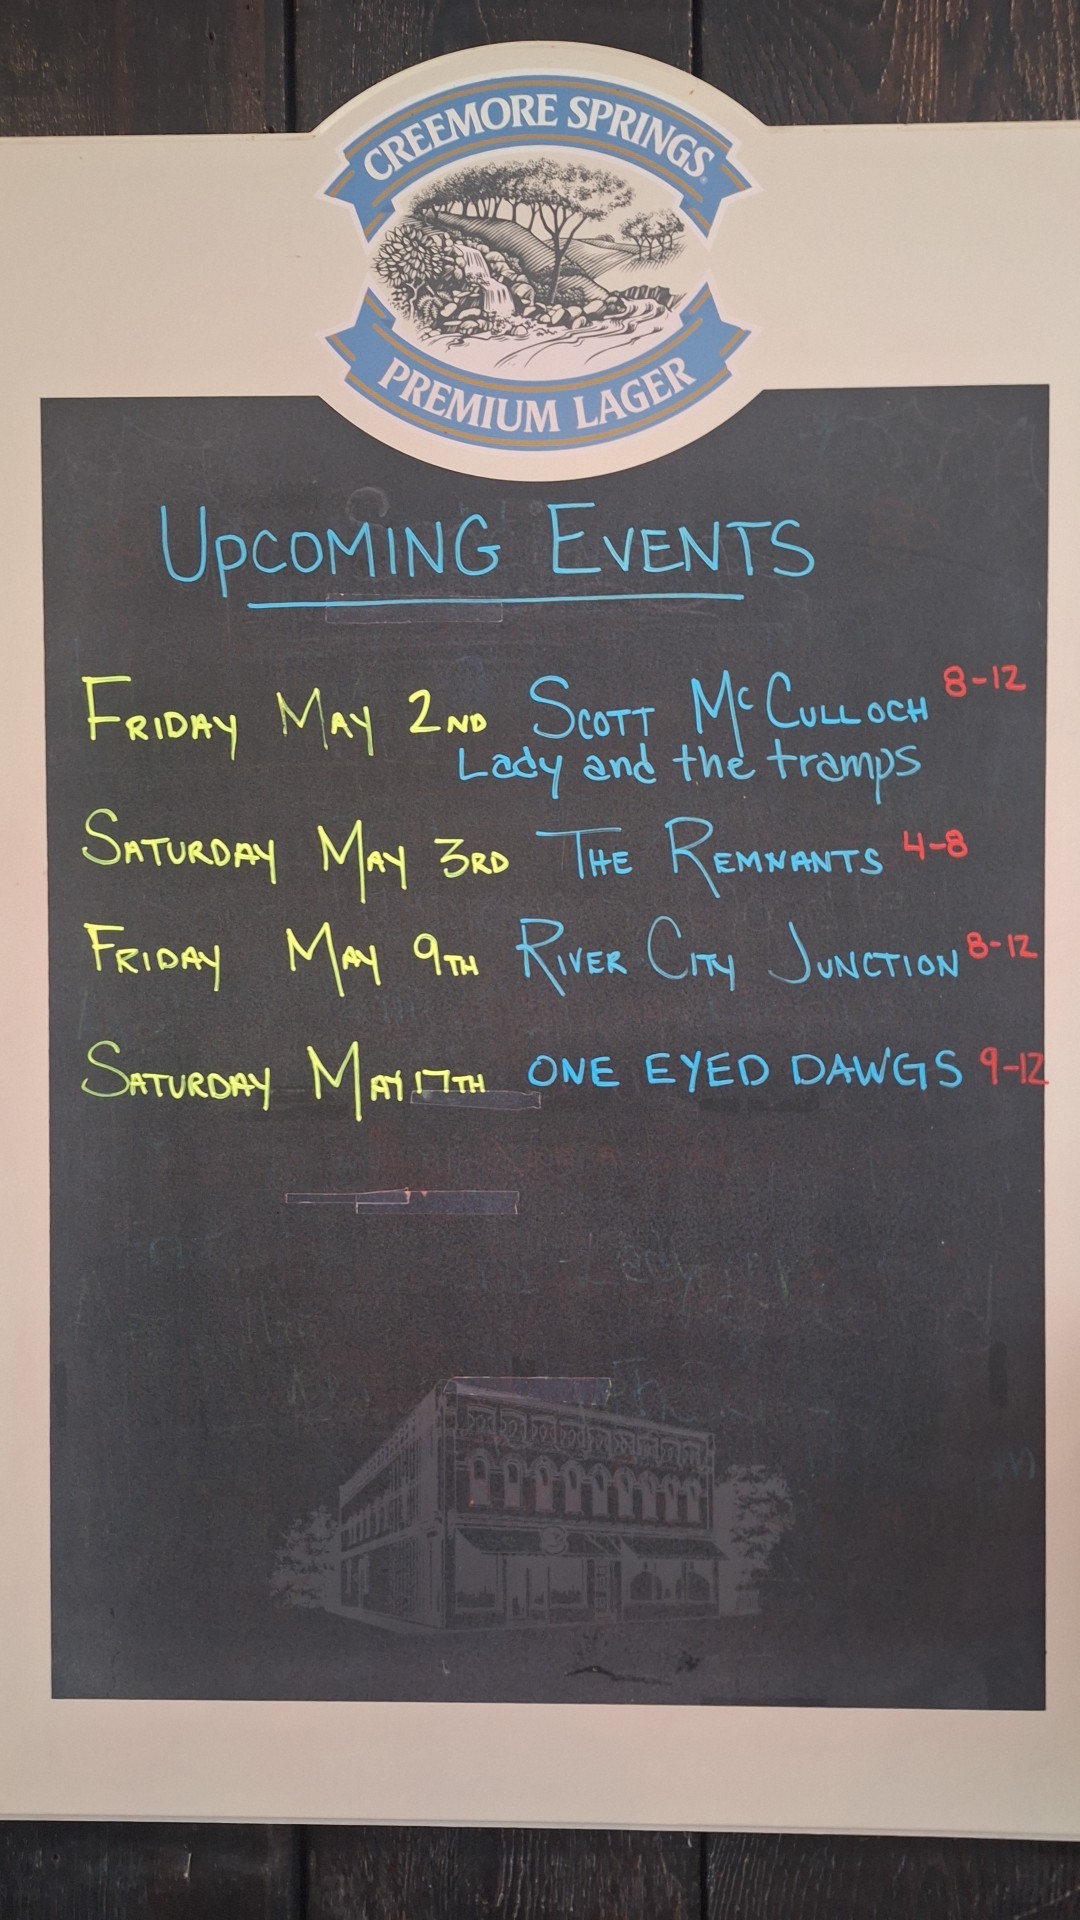 CREEMORE SPRINGS®
PREMIUM LAGER
UPCOMING EVENTS
FRIDAY MAY 2ND SCOTT McCULLOCH 8-12
Lady and the tramps
SATURDAY MAY 3RD THE REMNANTS 4-8
FRIDAY MAY 9TH RIVER CITY JUNCTION 8-12
SATURDAY MAY 17TH ONE EYED DAWGS 9-12